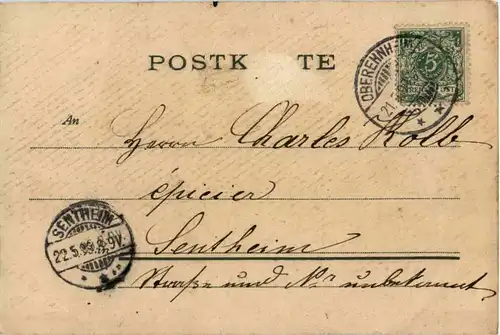 POSTK TE
OBEREHNHEIM
21.5
5
An
Herrn Charles Kolb
épicier
SENTHEIM
22.5.99.8-9V.
Sentheim
Straße und Nr unbekannt